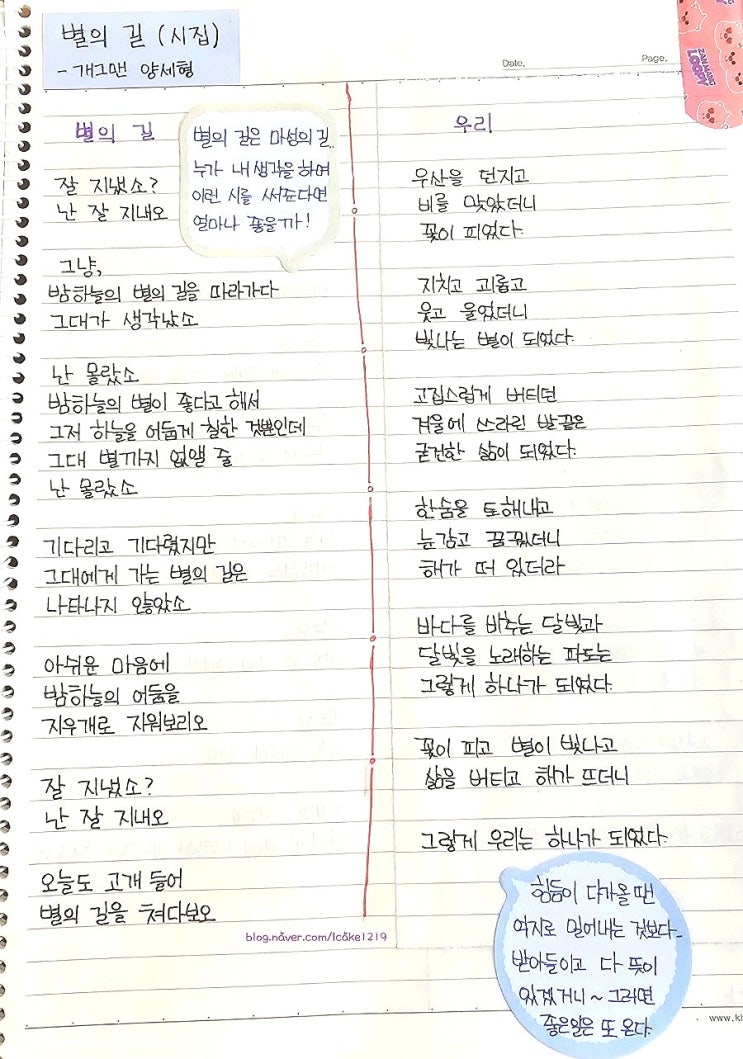 별의 길 (시집)
- 개그맨 양세형
Date.
Page.
ZANMANG
LOOPY
별의 길
별의 길은 마성의 길..
누가 내 생각을 하여
이런 시를 써준다면
얼마나 좋을까!
잘 지냈소?
난 잘 지내오
그냥,
밤하늘의 별의 길을 따라가다
그대가 생각났소
난 몰랐소
밤하늘의 별이 좋다고 해서
그저 하늘을 어둡게 칠한 것뿐인데
그대 별까지 없앨 줄
난 몰랐소
기다리고 기다렸지만
그대에게 가는 별의 길은
나타나지 않았소
아쉬운 마음에
밤하늘의 어둠을
지우개로 지워보리오
잘 지냈소?
난 잘 지내오
오늘도 고개 들어
별의 길을 쳐다보오
blog.naver.com/lcake1219
우리
우산을 던지고
비를 맞았더니
꽃이 피었다.
지치고 괴롭고
웃고 울었더니
빛나는 별이 되었다.
고집스럽게 버티던
겨울에 쓰라린 발끝은
굳건한 삶이 되었다.
한숨을 토해내고
눈감고 꿈꿨더니
해가 떠 있더라
바다를 비추는 달빛과
달빛을 노래하는 파도는
그렇게 하나가 되었다.
꽃이 피고 별이 빛나고
삶을 버티고 해가 뜨더니
그렇게 우리는 하나가 되었다.
힘듦이 다가올 땐
억지로 밀어내는 것보다..
받아들이고 다 뜻이
있겠거니~ 그러면
좋은일은 또 온다.